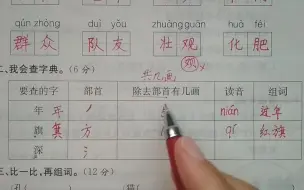 qún zhòng duì yǒu zhuàng guān huà féi
群 众 队 友 壮 观 化 肥
二、我会查字典。(6分)
共几画
要查的字 部首 除去部首有几画 读音 组词
年 丿 nián 近年
旗 方 qí 红旗
深 氵
三、比一比,再组词。(12分)